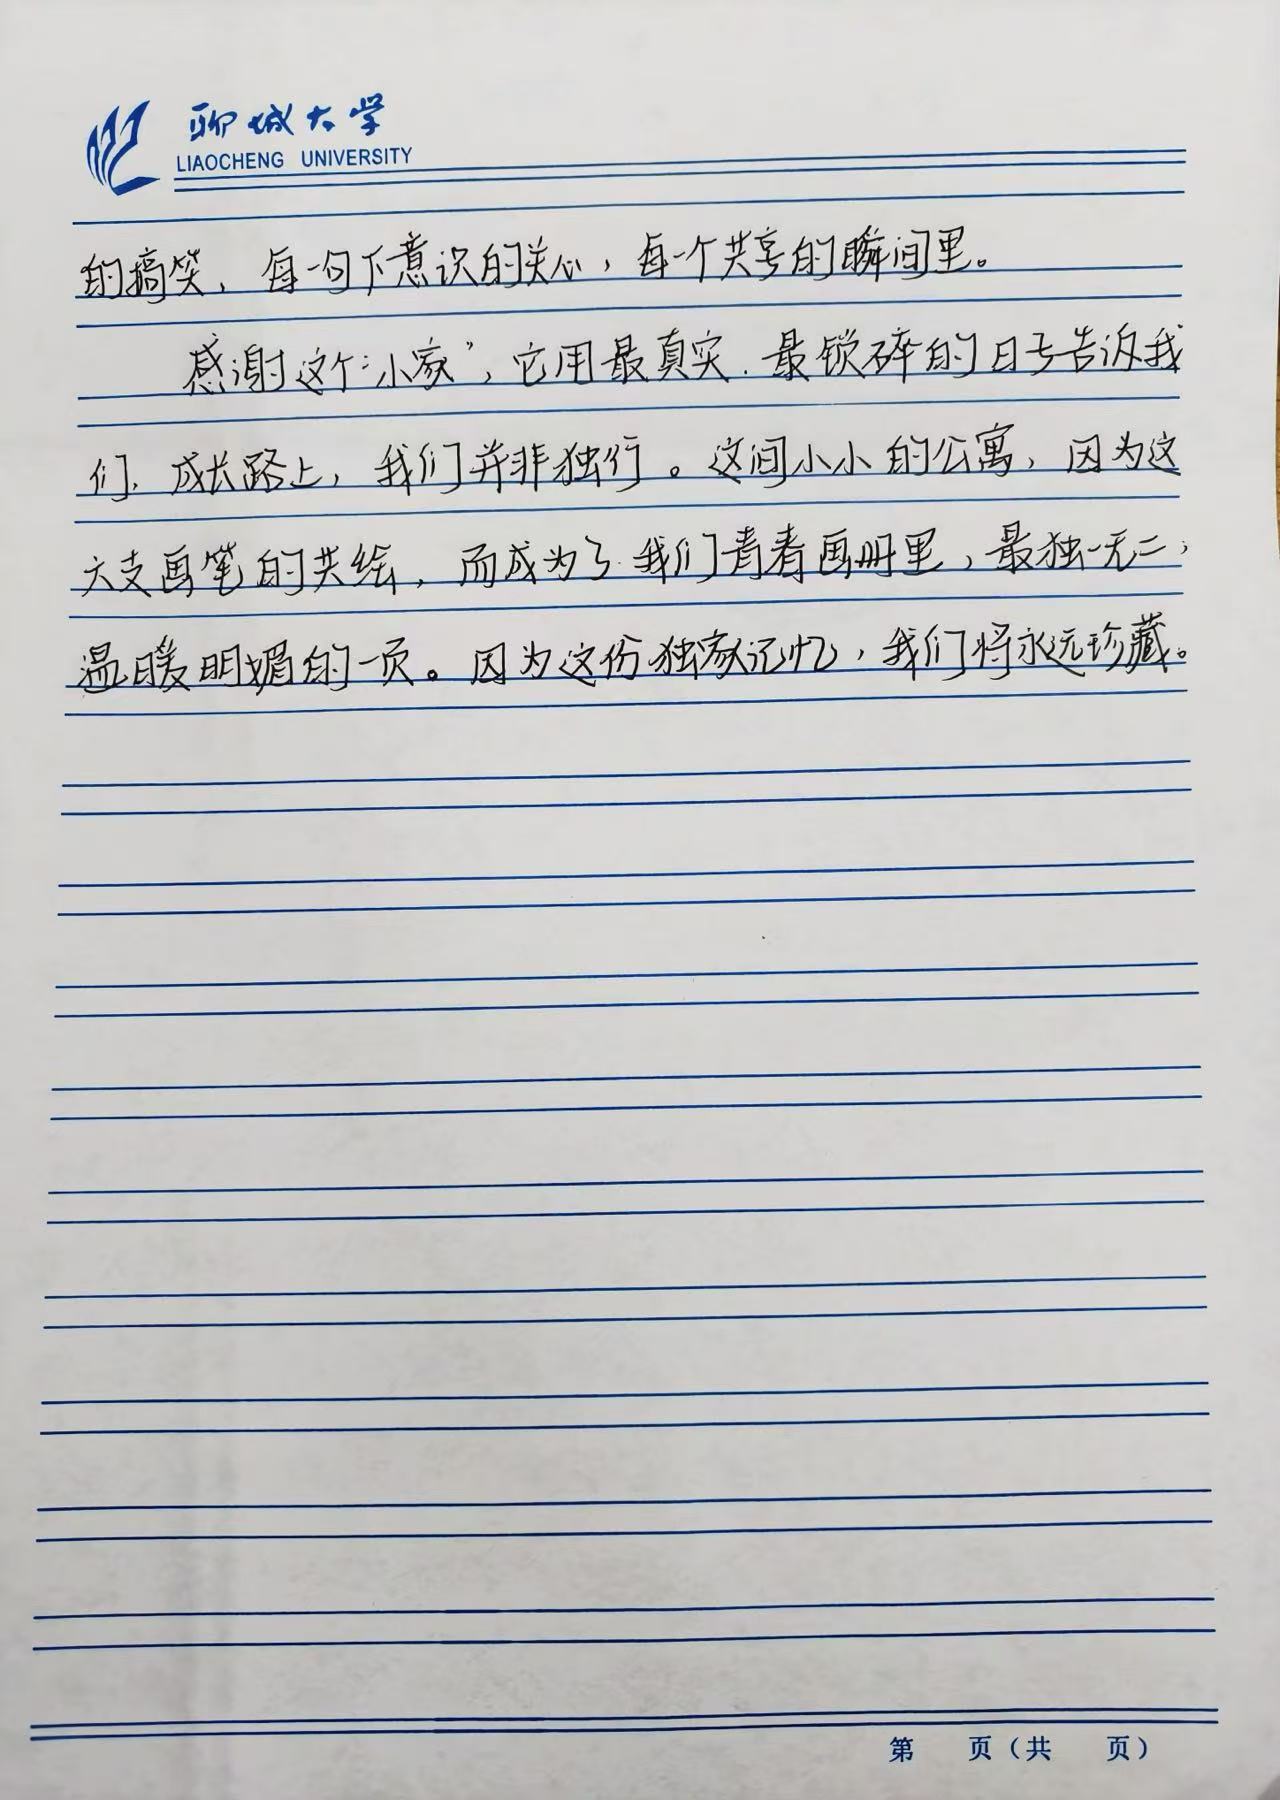 聊城大学
LIAOCHENG UNIVERSITY
的搞笑、每一句下意识的关心，每一个共享的瞬间里。
感谢这个“小家”，它用最真实、最锁碎的日子告诉我
们，成长路上，我们并非独行。这间小小的公寓，因为这
六支画笔的共绘，而成为了我们青春画册里，最独一无二，
温暖明媚的一页。因为这份独家记忆，我们将永远珍藏。
第 页（共 页）